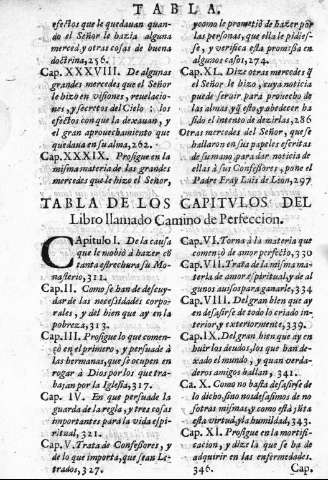 TABLA.
efectos que le quedauan quan-
do el Señor le hazia alguna
merced, y otras cosas de buena
doctrina, 256.
Cap. XXXVIII. De algunas
grandes mercedes que el Señor
le hizo en visiones, reuelacio-
nes, y secretos del Cielo; los
efectos con que la dexauan, y
el gran aprouechamiento que
quedaua en su alma, 262.
Cap. XXXIX. Prosigue en la
misma materia de las grandes
mercedes que le hizo el Señor,
y como le prometiò de hazer por
las personas, que ella le pidies-
se, y verifica esta promissa en
algunos casos, 274.
Cap. XL. Dize otras mercedes q̃
el Señor le hizo, cuya noticia
puede seruir para prouecho de
las almas, y q̃ esto, y obedecer ha
sido el intento de dezirlas, 286
Otras mercedes del Señor, que se
hallaron en sus papeles escritas
de su mano, para dar noticia de
ellas à sus Confessores, pone el
Padre Fray Luis de Lion, 297
TABLA DE LOS CAPITVLOS DEL
Libro llamado Camino de Perfeccion.
CApitulo I. De la causa
que le mobiò à hazer cõ
tanta estrechura su Mo-
nasterio, 311.
Cap. II. Como se han de descuy-
dar de las necesidades corpo-
rales, y del bien que ay en la
pobreza, 313.
Cap. III. Prosigue lo que comen-
çò en el primero, y persuade à
las hermanas, que se ocupen en
rogar à Dios por los que tra-
bajan por la Iglesia, 317.
Cap. IV. En que persuade la
guarda de la regla, y tres cosas
importantes para la vida espi-
ritual, 321.
Cap. V. Trata de Confessores, y
de lo que importa, que sean Le-
trados, 327.
Cap. VI. Torna à la materia que
començò de amor perfecto, 330
Cap. VII. Trata de la misma ma-
teria de amor espiritual, y de al
gunos auisos para ganarle, 334
Cap. VIII. Del gran bien que ay
en desasirse de todo lo criado in-
terior, y exteriormente, 339.
Cap. IX. Del gran bien que ay en
huir los deudos, los que han de-
xado el mundo, y quan verda-
deros amigos hallan, 341.
Ca. X. Como no basta desasirse de
lo dicho, sino nos desasimos de no
sotras mismas, y como està jũta
esta virtud, y la humildad, 343.
Cap. XI. Prosigue en la mortifi-
cacion, y dize la que se ha de
adquirir en las enfermedades.
346. Cap.